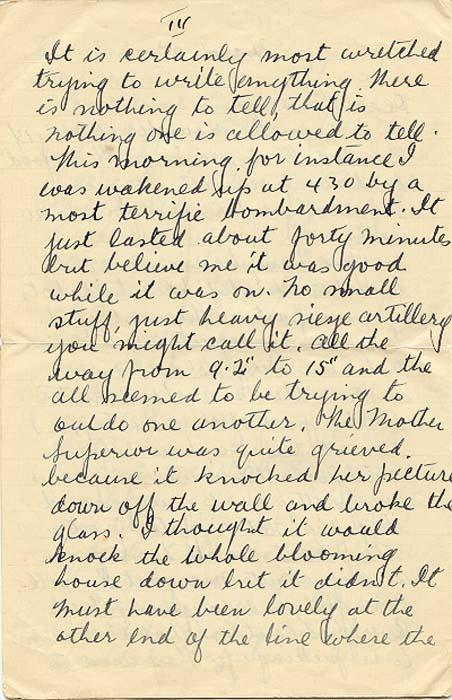 III
It is certainly most wretched
trying to write anything. There
is nothing to tell, that is
nothing one is allowed to tell.
This morning for instance I
was wakened up at 430 by a
most terrific bombardment. It
just lasted about forty minutes
but believe me it was good
while it was on. No small
stuff, just heavy siege artillery
you might call it. All the
way from 9.2" to 15" and the
all seemed to be trying to
outdo one another. The Mother
Superior was quite grieved
because it knocked her picture
down off the wall and broke the
glass. I thought it would
knock the whole blooming
house down but it didn't. It
must have been lovely at the
other end of the line where the